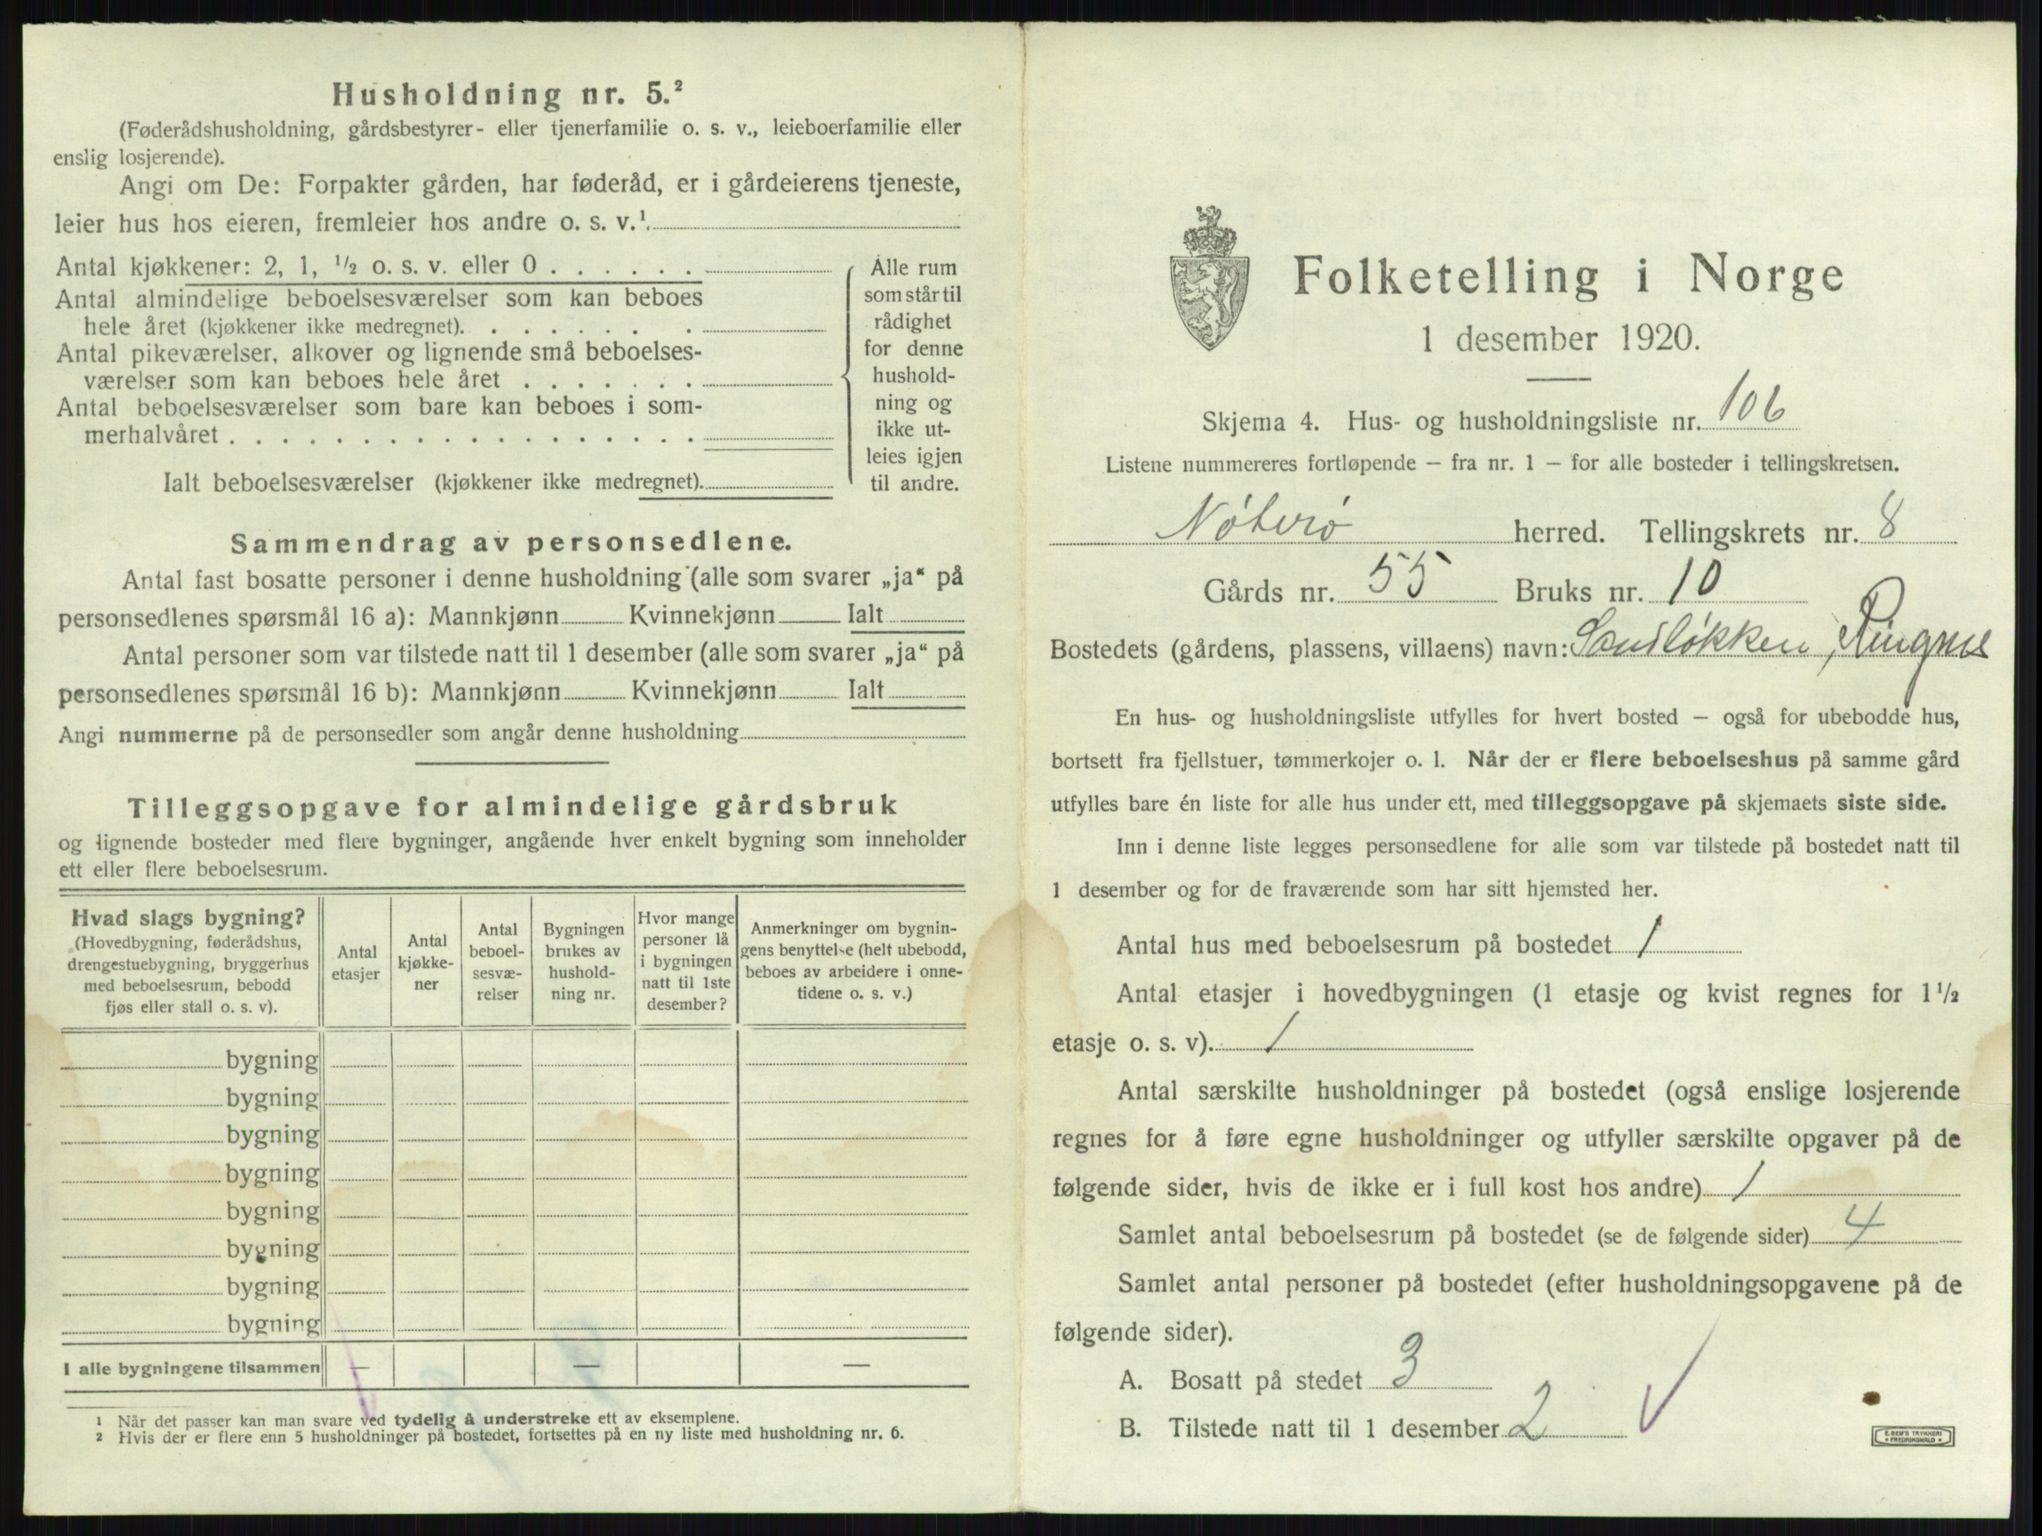 Husholdning nr. 5.²
(Føderådshusholdning, gårdsbestyrer- eller tjenerfamilie o. s. v., leieboerfamilie eller
enslig losjerende).
Angi om De: Forpakter gården, har føderåd, er i gårdeierens tjeneste,
leier hus hos eieren, fremleier hos andre o. s. v.¹
Antal kjøkkener: 2, 1, ½ o. s. v. eller 0
Antal almindelige beboelsesværelser som kan beboes
hele året (kjøkkener ikke medregnet).
Antal pikeværelser, alkover og lignende små beboelses-
værelser som kan beboes hele året
Antal beboelsesværelser som bare kan beboes i som-
merhalvåret
Ialt beboelsesværelser (kjøkkener ikke medregnet).
Alle rum
som står til
rådighet
for denne
hushold-
ning og
ikke ut-
leies igjen
til andre.
Sammendrag av personsedlene.
Antal fast bosatte personer i denne husholdning (alle som svarer „ja“ på
personsedlenes spørsmål 16 a): Mannkjønn Kvinnekjønn Ialt
Antal personer som var tilstede natt til 1 desember (alle som svarer „ja“ på
personsedlenes spørsmål 16 b): Mannkjønn Kvinnekjønn Ialt
Angi nummerne på de personsedler som angår denne husholdning
Tilleggsopgave for almindelige gårdsbruk
og lignende bosteder med flere bygninger, angående hver enkelt bygning som inneholder
ett eller flere beboelsesrum.
Hvad slags bygning?
(Hovedbygning, føderådshus,
drengestuebygning, bryggerhus
med beboelsesrum, bebodd
fjøs eller stall o. s. v).
Antal
etasjer
Antal
kjøkke-
ner
Antal
beboel-
sesvæ-
relser
Bygningen
brukes av
hushold-
ning nr.
Hvor mange
personer lå
i bygningen
natt til 1ste
desember?
Anmerkninger om bygnin-
gens benyttelse (helt ubebodd,
beboes av arbeidere i onne-
tidene o. s. v.)
bygning
bygning
bygning
bygning
bygning
bygning
bygning
bygning
I alle bygningene tilsammen — — —
¹ Når det passer kan man svare ved tydelig å understreke ett av eksemplene.
² Hvis der er flere enn 5 husholdninger på bostedet, fortsettes på en ny liste med husholdning nr. 6.
Folketelling i Norge
1 desember 1920.
Skjema 4. Hus- og husholdningsliste nr. 106
Listene nummereres fortløpende – fra nr. 1 – for alle bosteder i tellingskretsen.
Nøterø herred. Tellingskrets nr. 8
Gårds nr. 55 Bruks nr. 10
Bostedets (gårdens, plassens, villaens) navn: Sandløkken, Ringnes
En hus- og husholdningsliste utfylles for hvert bosted – også for ubebodde hus,
bortsett fra fjellstuer, tømmerkojer o. l. Når der er flere beboelseshus på samme gård
utfylles bare én liste for alle hus under ett, med tilleggsopgave på skjemaets siste side.
Inn i denne liste legges personsedlene for alle som var tilstede på bostedet natt til
1 desember og for de fraværende som har sitt hjemsted her.
Antal hus med beboelsesrum på bostedet 1
Antal etasjer i hovedbygningen (1 etasje og kvist regnes for 1½
etasje o. s. v). 1
Antal særskilte husholdninger på bostedet (også enslige losjerende
regnes for å føre egne husholdninger og utfyller særskilte opgaver på de
følgende sider, hvis de ikke er i full kost hos andre) 1
Samlet antal beboelsesrum på bostedet (se de følgende sider) 4
Samlet antal personer på bostedet (efter husholdningsopgavene på de
følgende sider).
A. Bosatt på stedet 3
B. Tilstede natt til 1 desember 2
E. SEM'S TRYKKERI
FREDRIKSHALD